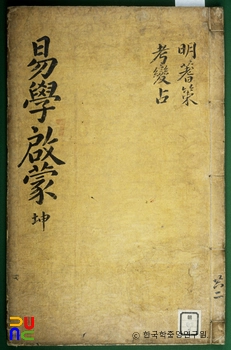 易學啟蒙 坤
明蓍策
考變占
共二
© 한국학중앙연구원